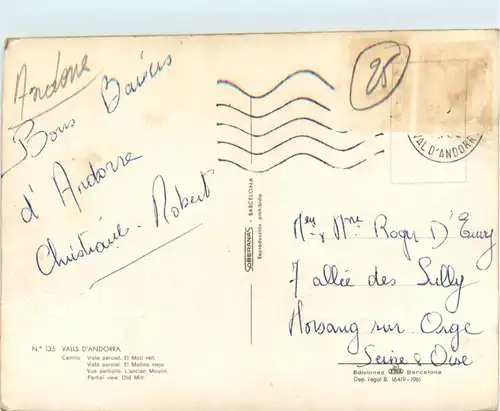 Andorre
25
Bons Baisers
d'Andorre
Christiane. Robert
VAL D'ANDORR
SOBERANAS - BARCELONA
Reproducción prohibida
Mr & Mme Roger D'
7 allée des Sully
Morsang sur Orge
Seine & Oise
N.º 135 VALLS D'ANDORRA.
Canillo: Vista parcial. El Molí vell.
Vista parcial. El Molino viejo.
Vue partielle. L'ancien Moulin.
Partial view. Old Mill.
Ediciones Barcelona
Dep. Legal B. 16419-1961